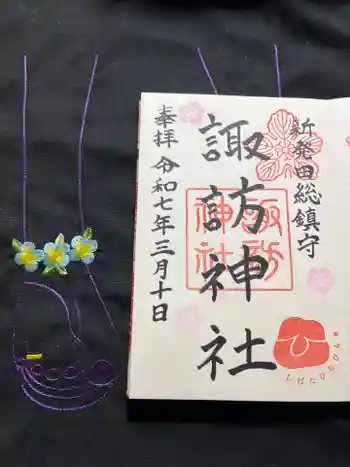 新発田総鎮守
諏訪神社
奉拝 令和七年三月十日
諏訪
神社